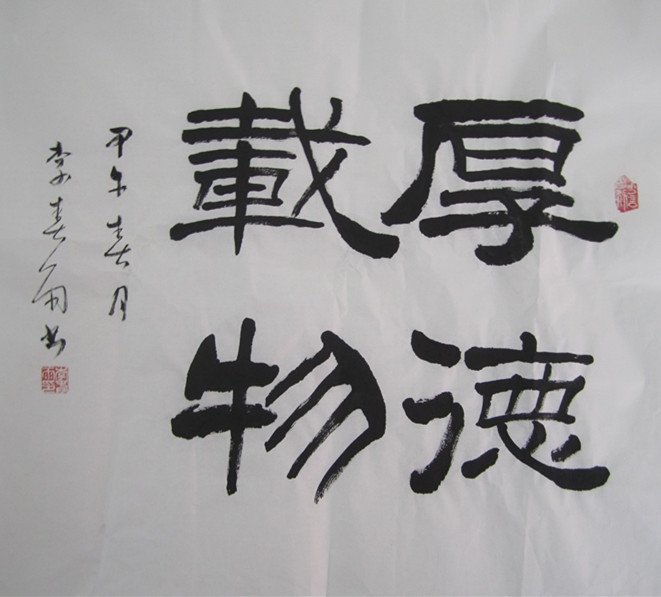 厚德
載物
甲午春月
李春雨书